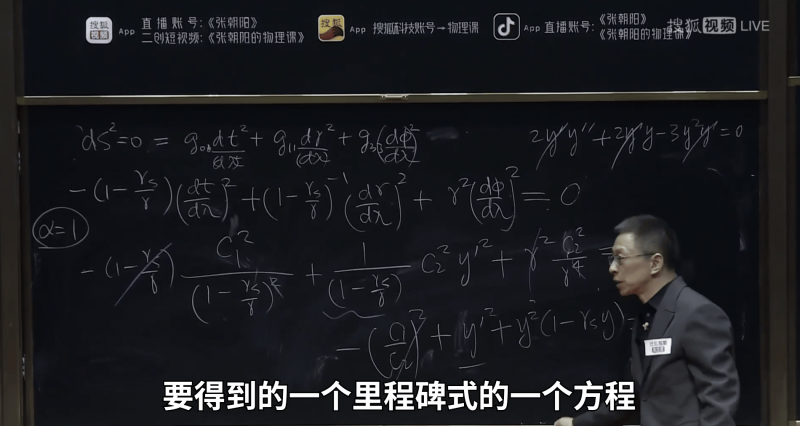 搜狐视频 App 直播账号:《张朝阳》
二创短视频:《张朝阳的物理课》
App 搜狐科技账号→物理课
App 直播账号:《张朝阳》
《张朝阳的物理课》
搜狐视频 LIVE
ds²=0 = g₀₀dt²/(dλ)² + g₁₁dr²/(dλ)² + g₃₃(dφ)²/(dλ)²
2y'y'' + 2y'y - 3y²y' = 0
-(1-rₛ/r)(dt/dλ)² + (1-rₛ/r)⁻¹(dr/dλ)² + r²(dφ/dλ)² = 0
α=1
-(1-rₛ/r) C₁²/(1-rₛ/r)² + 1/(1-rₛ/r) C₂² y'² + r² C₂²/r⁴ =
-(C₁/C₂)² + y'² + y²(1-rₛy)
要得到的一个里程碑式的一个方程